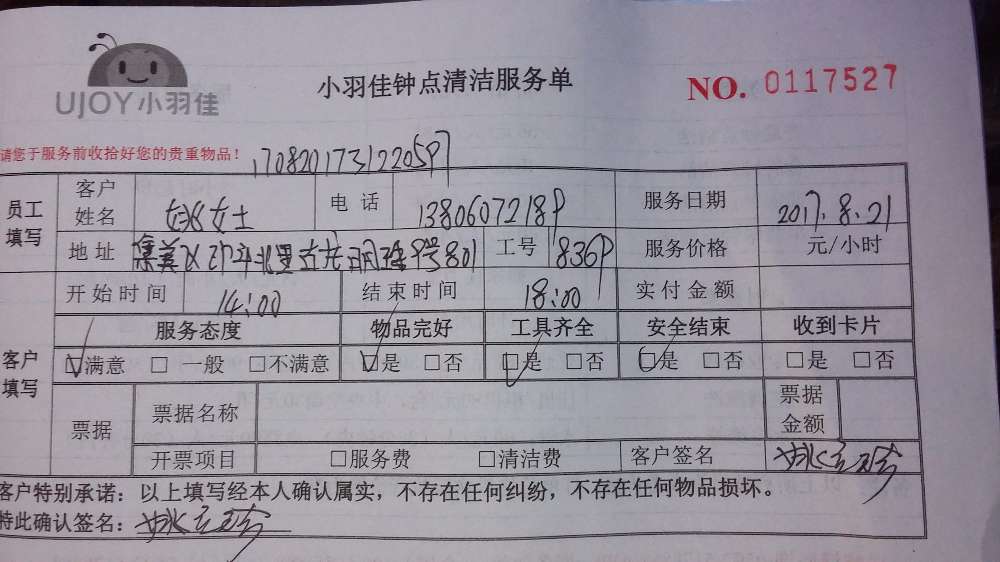 UJOY小羽佳
小羽佳钟点清洁服务单
NO. 0117527
请您于服务前收拾好您的贵重物品！
员工填写
客户姓名 姚女士 电话 服务日期 2017.8.21
地址 集美区 801 工号 服务价格 元/小时
开始时间 14:00 结束时间 18:00 实付金额
客户填写
服务态度 物品完好 工具齐全 安全结束 收到卡片
☑满意 □一般 □不满意 ☑是 □否 ☑是 □否 ☑是 □否 □是 □否
票据 票据名称 票据金额
开票项目 □服务费 □清洁费 客户签名
客户特别承诺：以上填写经本人确认属实，不存在任何纠纷，不存在任何物品损坏。
特此确认签名：